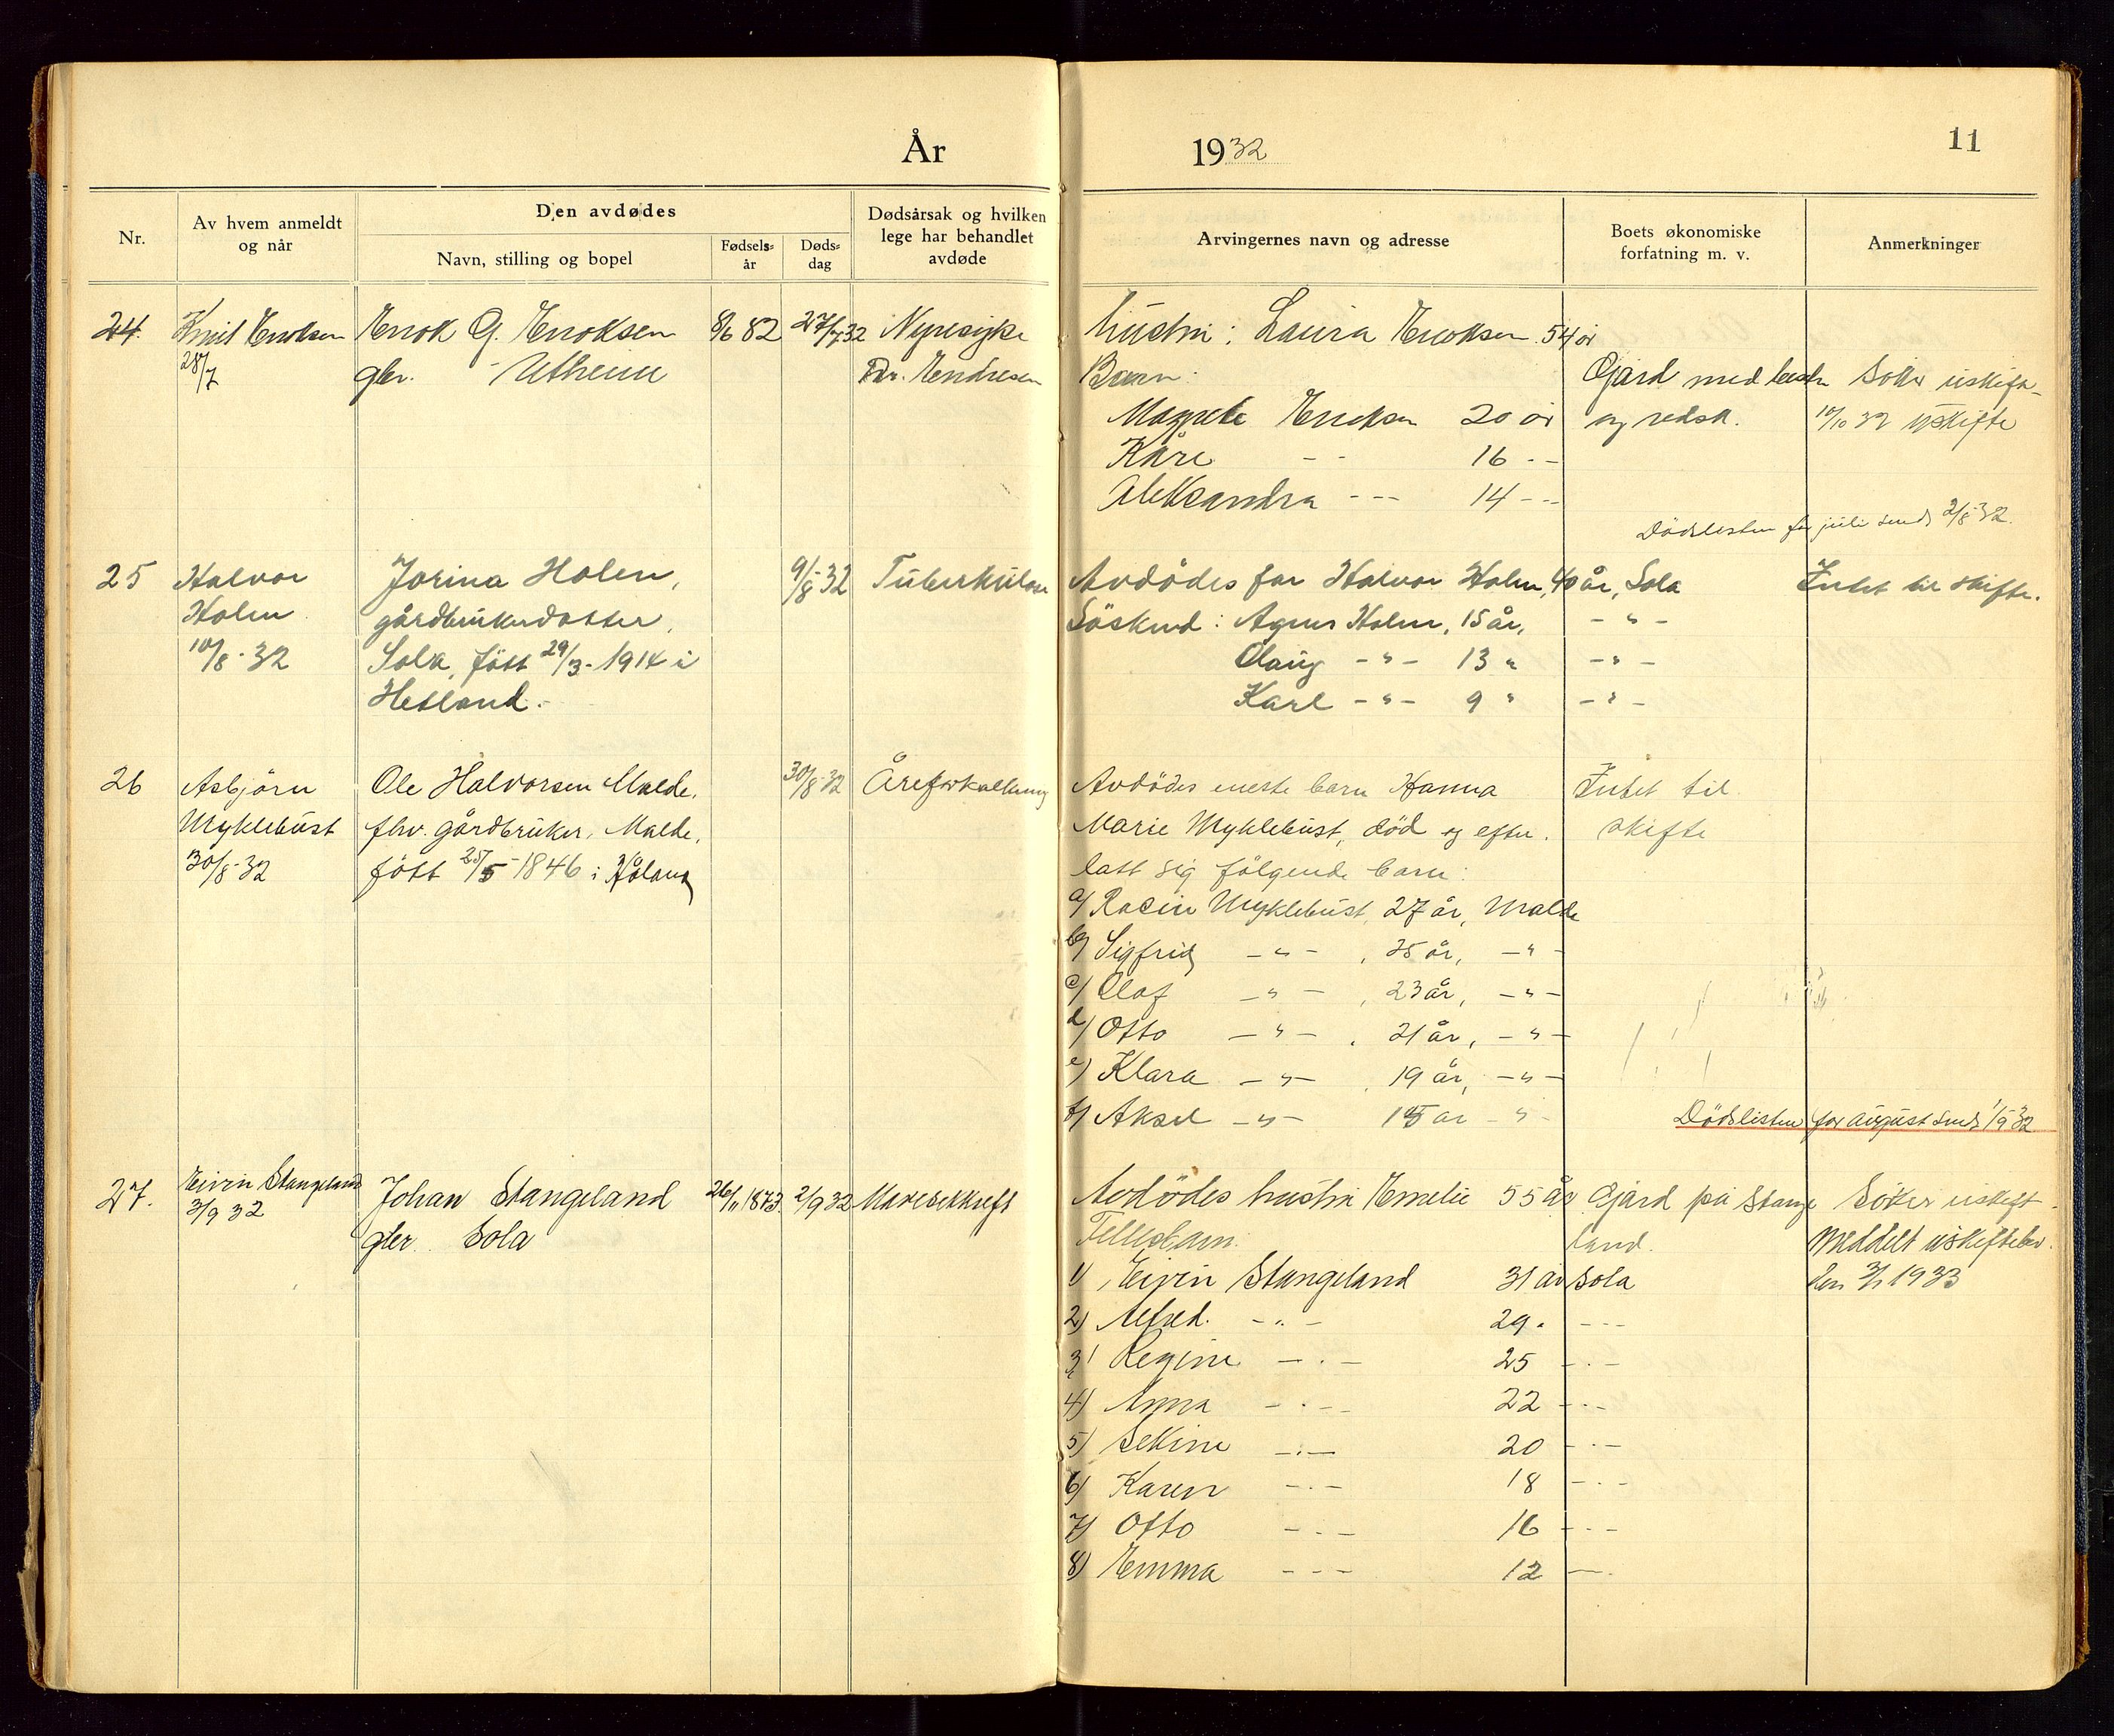 År 1932
11
Nr.
Av hvem anmeldt og når
Den avdødes
Navn, stilling og bopel
Fødsels- år
Døds- dag
Dødsårsak og hvilken lege har behandlet avdøde
Arvingernes navn og adresse
Boets økonomiske forfatning m. v.
Anmerkninger
24. Knut Enoksen Enok G. Enoksen 8/6 82 27/7 32 Nyresyke Hustru: Laura Enoksen 54 år
28/7 gbr. Utheim Dr. Endresen Barn: Gjård med besetn Söker uskifte
Magrete Enoksen 20 år og redsk. 10/10 32 uskifte
Kåre - - 16 - -
Aleksandra - - - 14 - -
Dödslisten for juli sendt 2/8 32.
25 Halvor Jorina Holen, 9/8-32 Tuberkulose Avdödes far Halvor Holen, 40 år, Sola Intet til skifte.
Holen gårdbrukerdatter, Söskend: Agnes Holen, 15 år, - " -
10/8-32 Sola, født 29/3-1914 i Olaug - " - 13 " - " -
Hetland. Karl - " - 9 " - " -
26 Asbjörn Ole Halvorsen Malde, 30/8-32 Åreforkalkning Avdödes eneste barn Hanna Intet til
Myklebust fhv. gårdbruker, Malde, Marie Myklebust, död og efter- skifte
30/8-32 født 25/5-1846 i Håland latt sig fölgende barn:
a/ Rasin Myklebust, 27 år, Malde
b/ Sigfrid - " - , 25 år, - " -
c/ Olaf - " - , 23 år, - " -
d/ Otto - " - , 21 år, - " -
e/ Klara - " - , 19 år, - " -
f/ Aksel - " - 15 år - " -
Dödslisten for august sendt 1/9 32
27. Eivin Stangeland Johan Stangeland 26/11 1873 2/9 32 Mavesekkreft Avdödes hustru Emelie 55 år Gjård på Stange Söker uskift
3/9 32 gbr. Sola Fellesbarn: land. Meddelt uskiftebev.
1) Eivin Stangeland 31 år Sola den 3/1 1933
2) Alfred. - " - 29 " - - -
3) Regine - " - 25 - " -
4) Anna - " - - 22 - " -
5) Sekine - " - 20 - " -
6) Karen - " - 18 - " -
7) Otto - " - 16 - " -
8) Emma - - - 12 - -